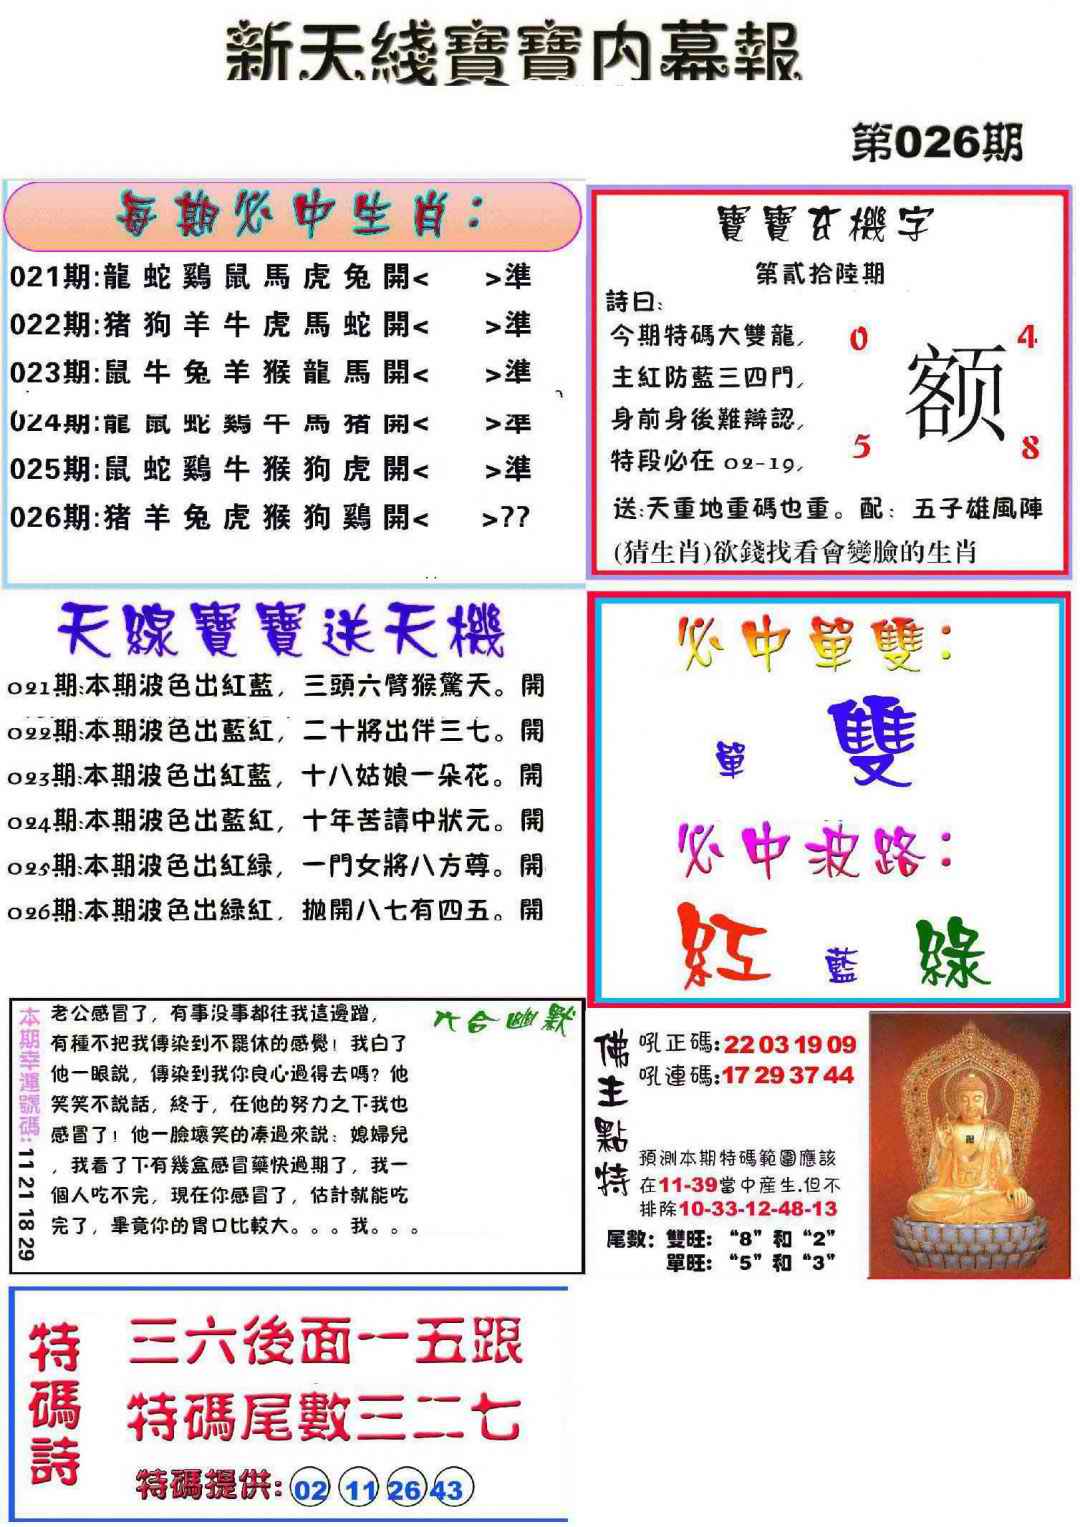 新天綫寶寶内幕報
第026期
每期必中生肖：
021期:龍 蛇 鷄 鼠 馬 虎 兔 開< >準
022期:猪 狗 羊 牛 虎 馬 蛇 開< >準
023期:鼠 牛 兔 羊 猴 龍 馬 開< >準
024期:龍 鼠 蛇 鷄 牛 馬 猪 開< >準
025期:鼠 蛇 鷄 牛 猴 狗 虎 開< >準
026期:猪 羊 兔 虎 猴 狗 鷄 開< >??
寶寶玄機字
第貳拾陸期
詩曰:
今期特碼大雙龍,
主紅防藍三四門,
身前身後難辯認,
特段必在 02-19,
0 4
额
5 8
送:天重地重碼也重。配：五子雄風陣
(猜生肖)欲錢找看會變臉的生肖
天線寶寶送天機
021期:本期波色出紅藍，三頭六臂猴驚天。開
022期:本期波色出藍紅，二十將出伴三七。開
023期:本期波色出紅藍，十八姑娘一朵花。開
024期:本期波色出藍紅，十年苦讀中狀元。開
025期:本期波色出紅緑，一門女將八方尊。開
026期:本期波色出緑紅，拋開八七有四五。開
必中單雙：
單 雙
必中波路：
紅 藍 綠
本期幸運號碼:11 21 18 29
六合幽默
老公感冒了，有事没事都往我這邊蹭，
有種不把我傳染到不罷休的感覺！我白了
他一眼説，傳染到我你良心過得去嗎？他
笑笑不説話，終于，在他的努力之下我也
感冒了！他一臉壞笑的凑過來説：媳婦兒
，我看了下有幾盒感冒藥快過期了，我一
個人吃不完，現在你感冒了，估計就能吃
完了，畢竟你的胃口比較大。。。我。。。
佛主點特
吼正碼:22 03 19 09
吼連碼:17 29 37 44
預測本期特碼範圍應該
在11-39當中産生.但不
排除10-33-12-48-13
尾數：雙旺：“8”和“2”
單旺：“5”和“3”
特碼詩
三六後面一五跟
特碼尾數三二七
特碼提供: 02 11 26 43